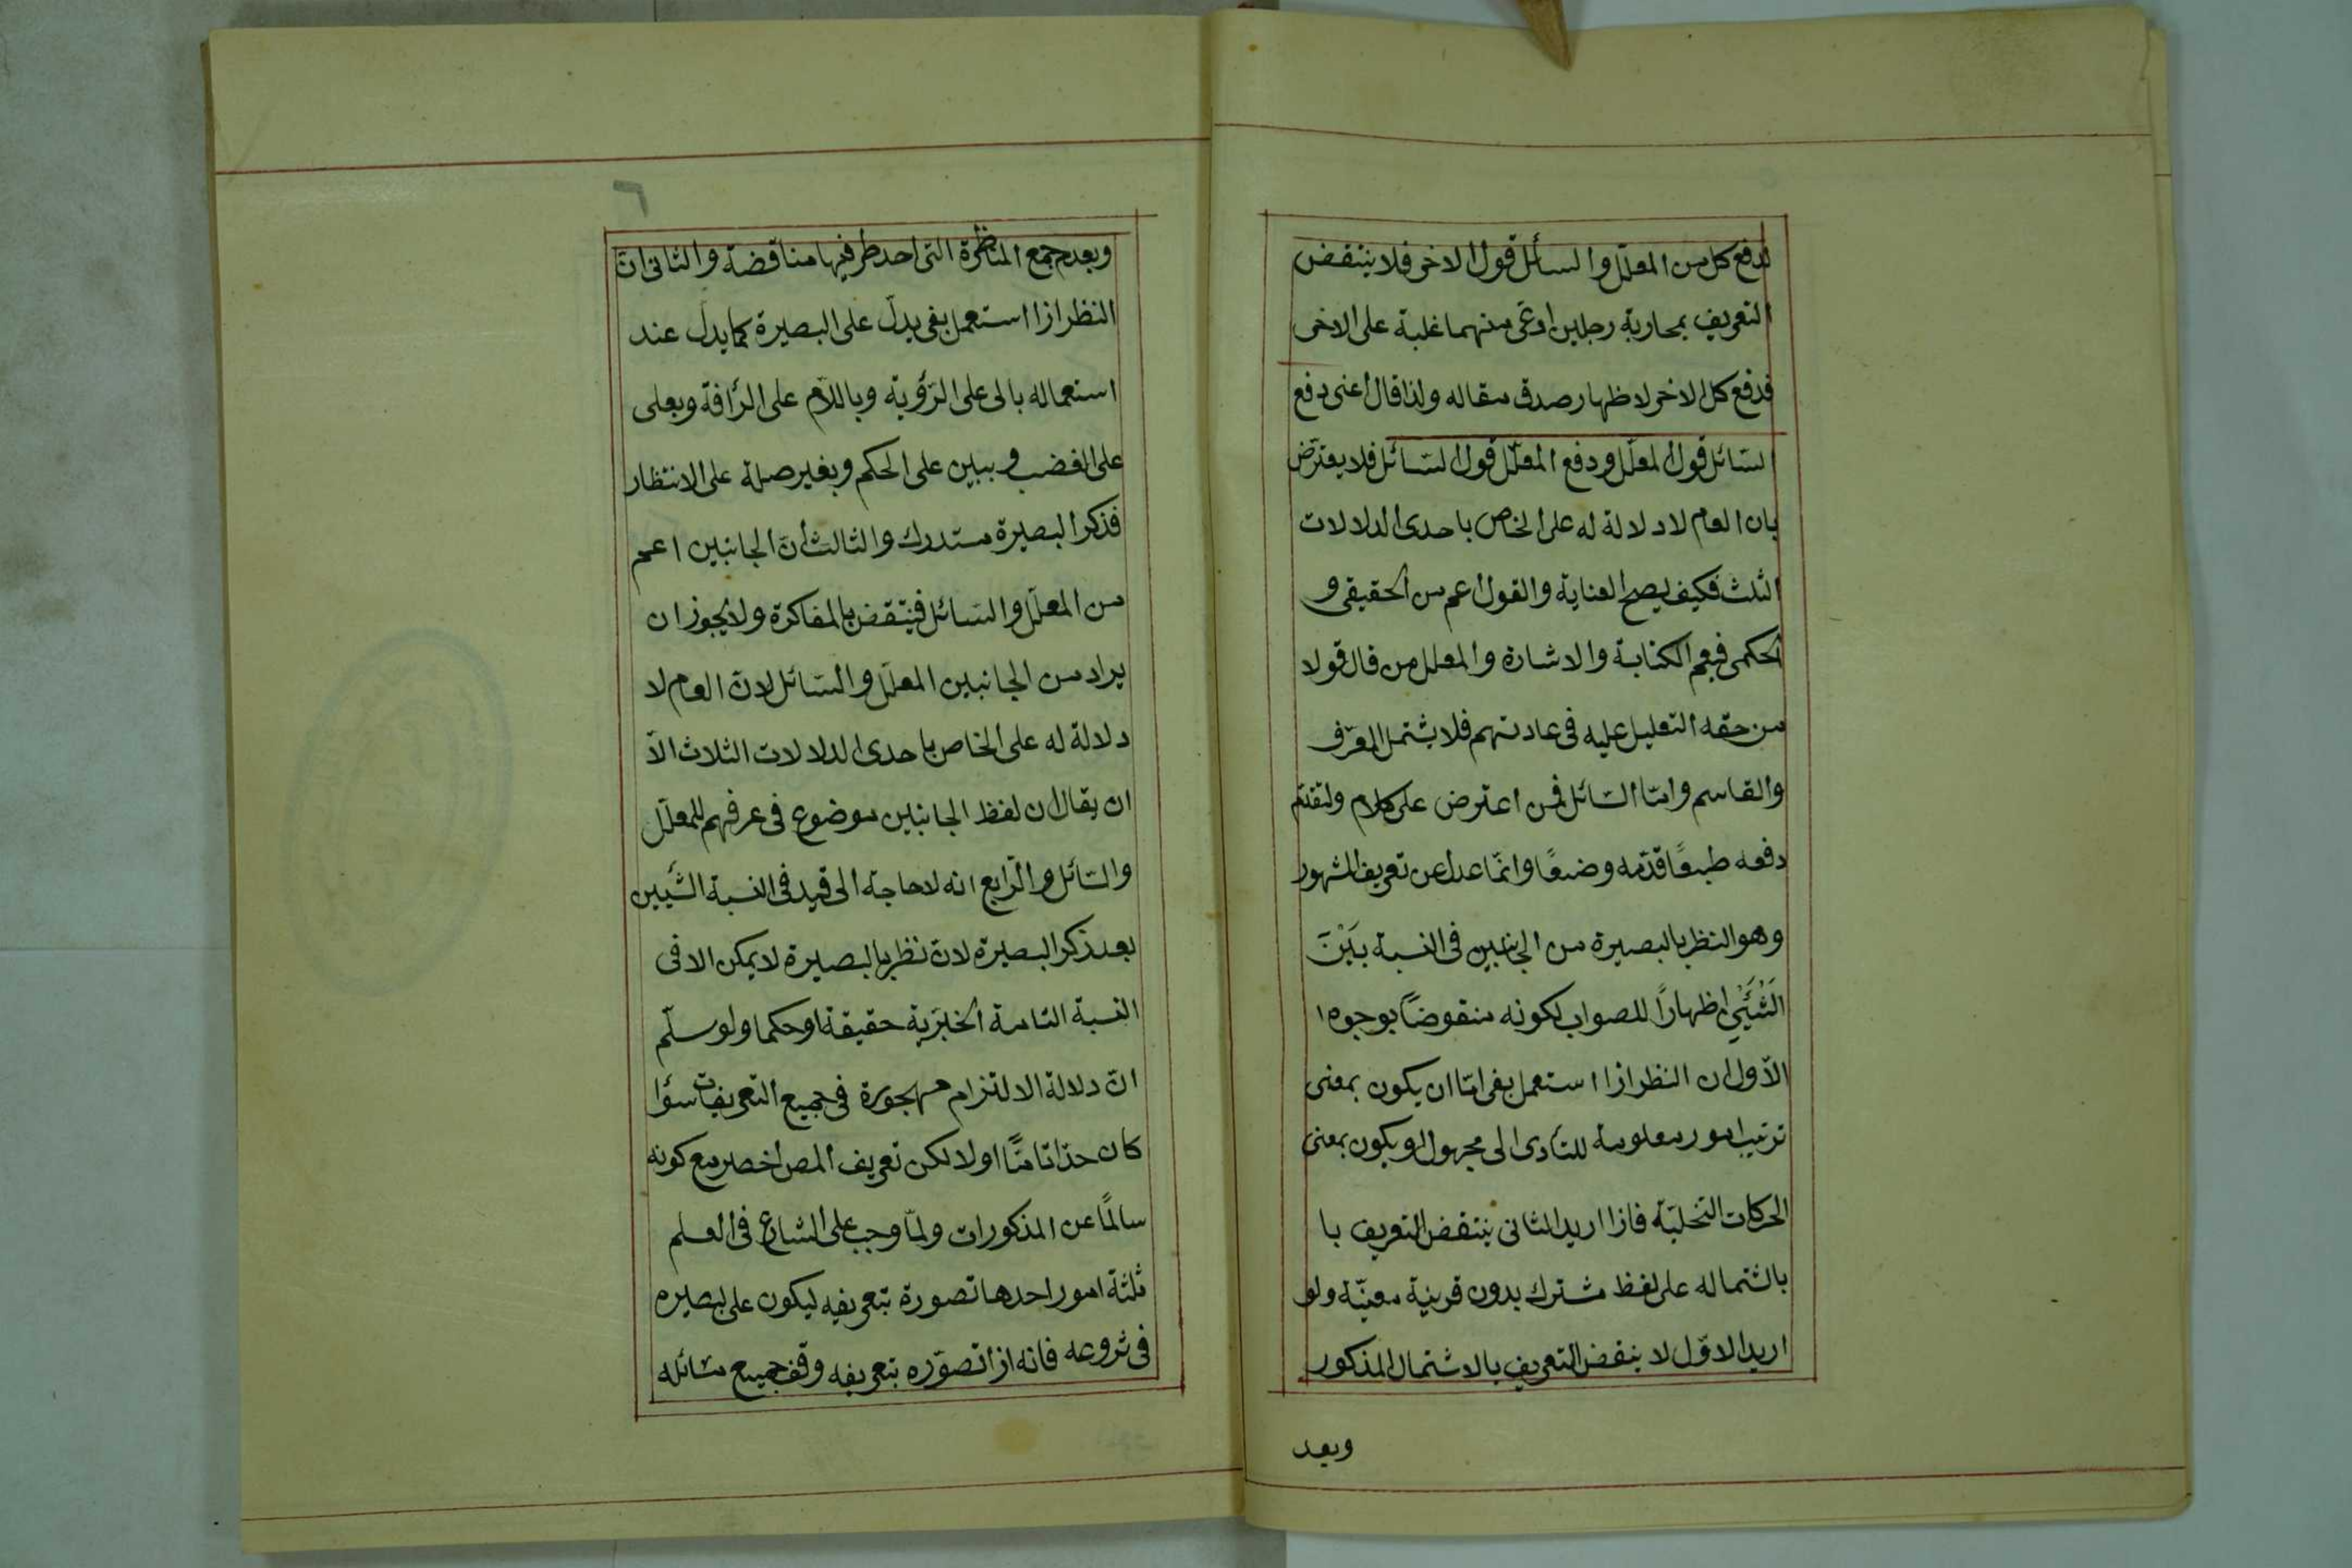 لدفع كل من المعلّل والسائل قول الاخر فلا ينتقض
التعريف بمحاربة رجلين ادعى منهما غلبة على الاخر
فدفع كل الاخر لاظهار صدق مقاله ولذا قال اعنى دفع
السّائل قول المعلّل ودفع المعلّل قول السّائل فلا يعترض
بان العام لا دلالة له على الخاص باحدى الدلالات
الثلث فكيف يصح العناية والقول اعم من الحقيقى و
الحكمى فيعم الكتابة والاشارة والمعلل من قال قولا
من حقه التعليل عليه فى عادتهم فلا يشتمل المعرّف
والقاسم وامّا السّائل فمن اعترض على كلام ولتقدّم
دفعه طبعًا قدّمه وضعًا وانّما عدل عن تعريف المشهور
وهو النظر بالبصيرة من الجانبين فى النسبة بَيْنَ
الشَّيْئَيْنِ اظهارًا للصواب لكونه منقوضًا بوجوه ١
الاّول ان النظر اذا استعمل بفى امّا ان يكون بمعنى
ترتيب امور معلومة للتأدى الى مجهول او يكون بمعنى
الحركات التخليّة فاذا اريد الثانى ينتقض التعريف با
باشتماله على لفظ مشترك بدون قرينة معيّنة ولو
اريد الاوّل لا ينقض التعريف بالاشتمال المذكور
وبعد
٦
وبعدم جمع المناظرة التى احد طرفيها مناقضة والثانى انّ
النظر اذا استعمل بفى يدلّ على البصيرة كما يدلّ عند
استعماله بالى على الرّؤية وباللاّم على الرّأفة وبعلى
على الغضب و ببين على الحكم وبغير صلة على الانتظار
فذكر البصيرة مستدرك والثالث انّ الجانبين اعم
من المعلّل والسّائل فينتقض بالمفاكرة ولا يجوز ان
يراد من الجانبين المعلّل والسّائل لانّ العام لا
دلالة له على الخاص باحدى الدلالات الثلاث الاّ
ان يقال ان لفظ الجانبين موضوع فى عرفهم للمعلّل
والسّائل والرّابع انه لا حاجة الى قيد فى النسبة الشّيئين
بعد ذكر البصيرة لانّ نظر بالبصيرة لا يمكن الا فى
النسبة التامة الخبَريّة حقيقة اوحكما ولو سلّم
انّ دلالة الالتزام مهجورة فى جميع التعريفات سؤا
كان حدّا تامّا اولا لكن تعريف المص اخصر مع كونه
سالمًا عن المذكورات ولمّا وجب على الشارع فى العلم
ثلثة امور احدها تصورة بتعريفه ليكون على بصيره
فى شروعه فانه اذا تصوّره بتعريفه وقف جميع مسائله